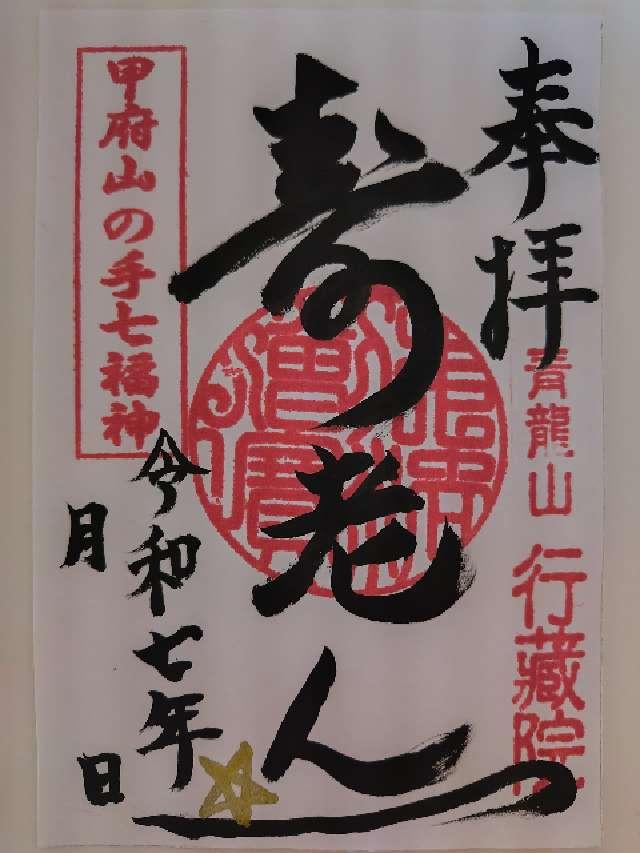 奉拝
青龍山 行蔵院
寿老人
甲府山の手七福神
令和七年
月
日